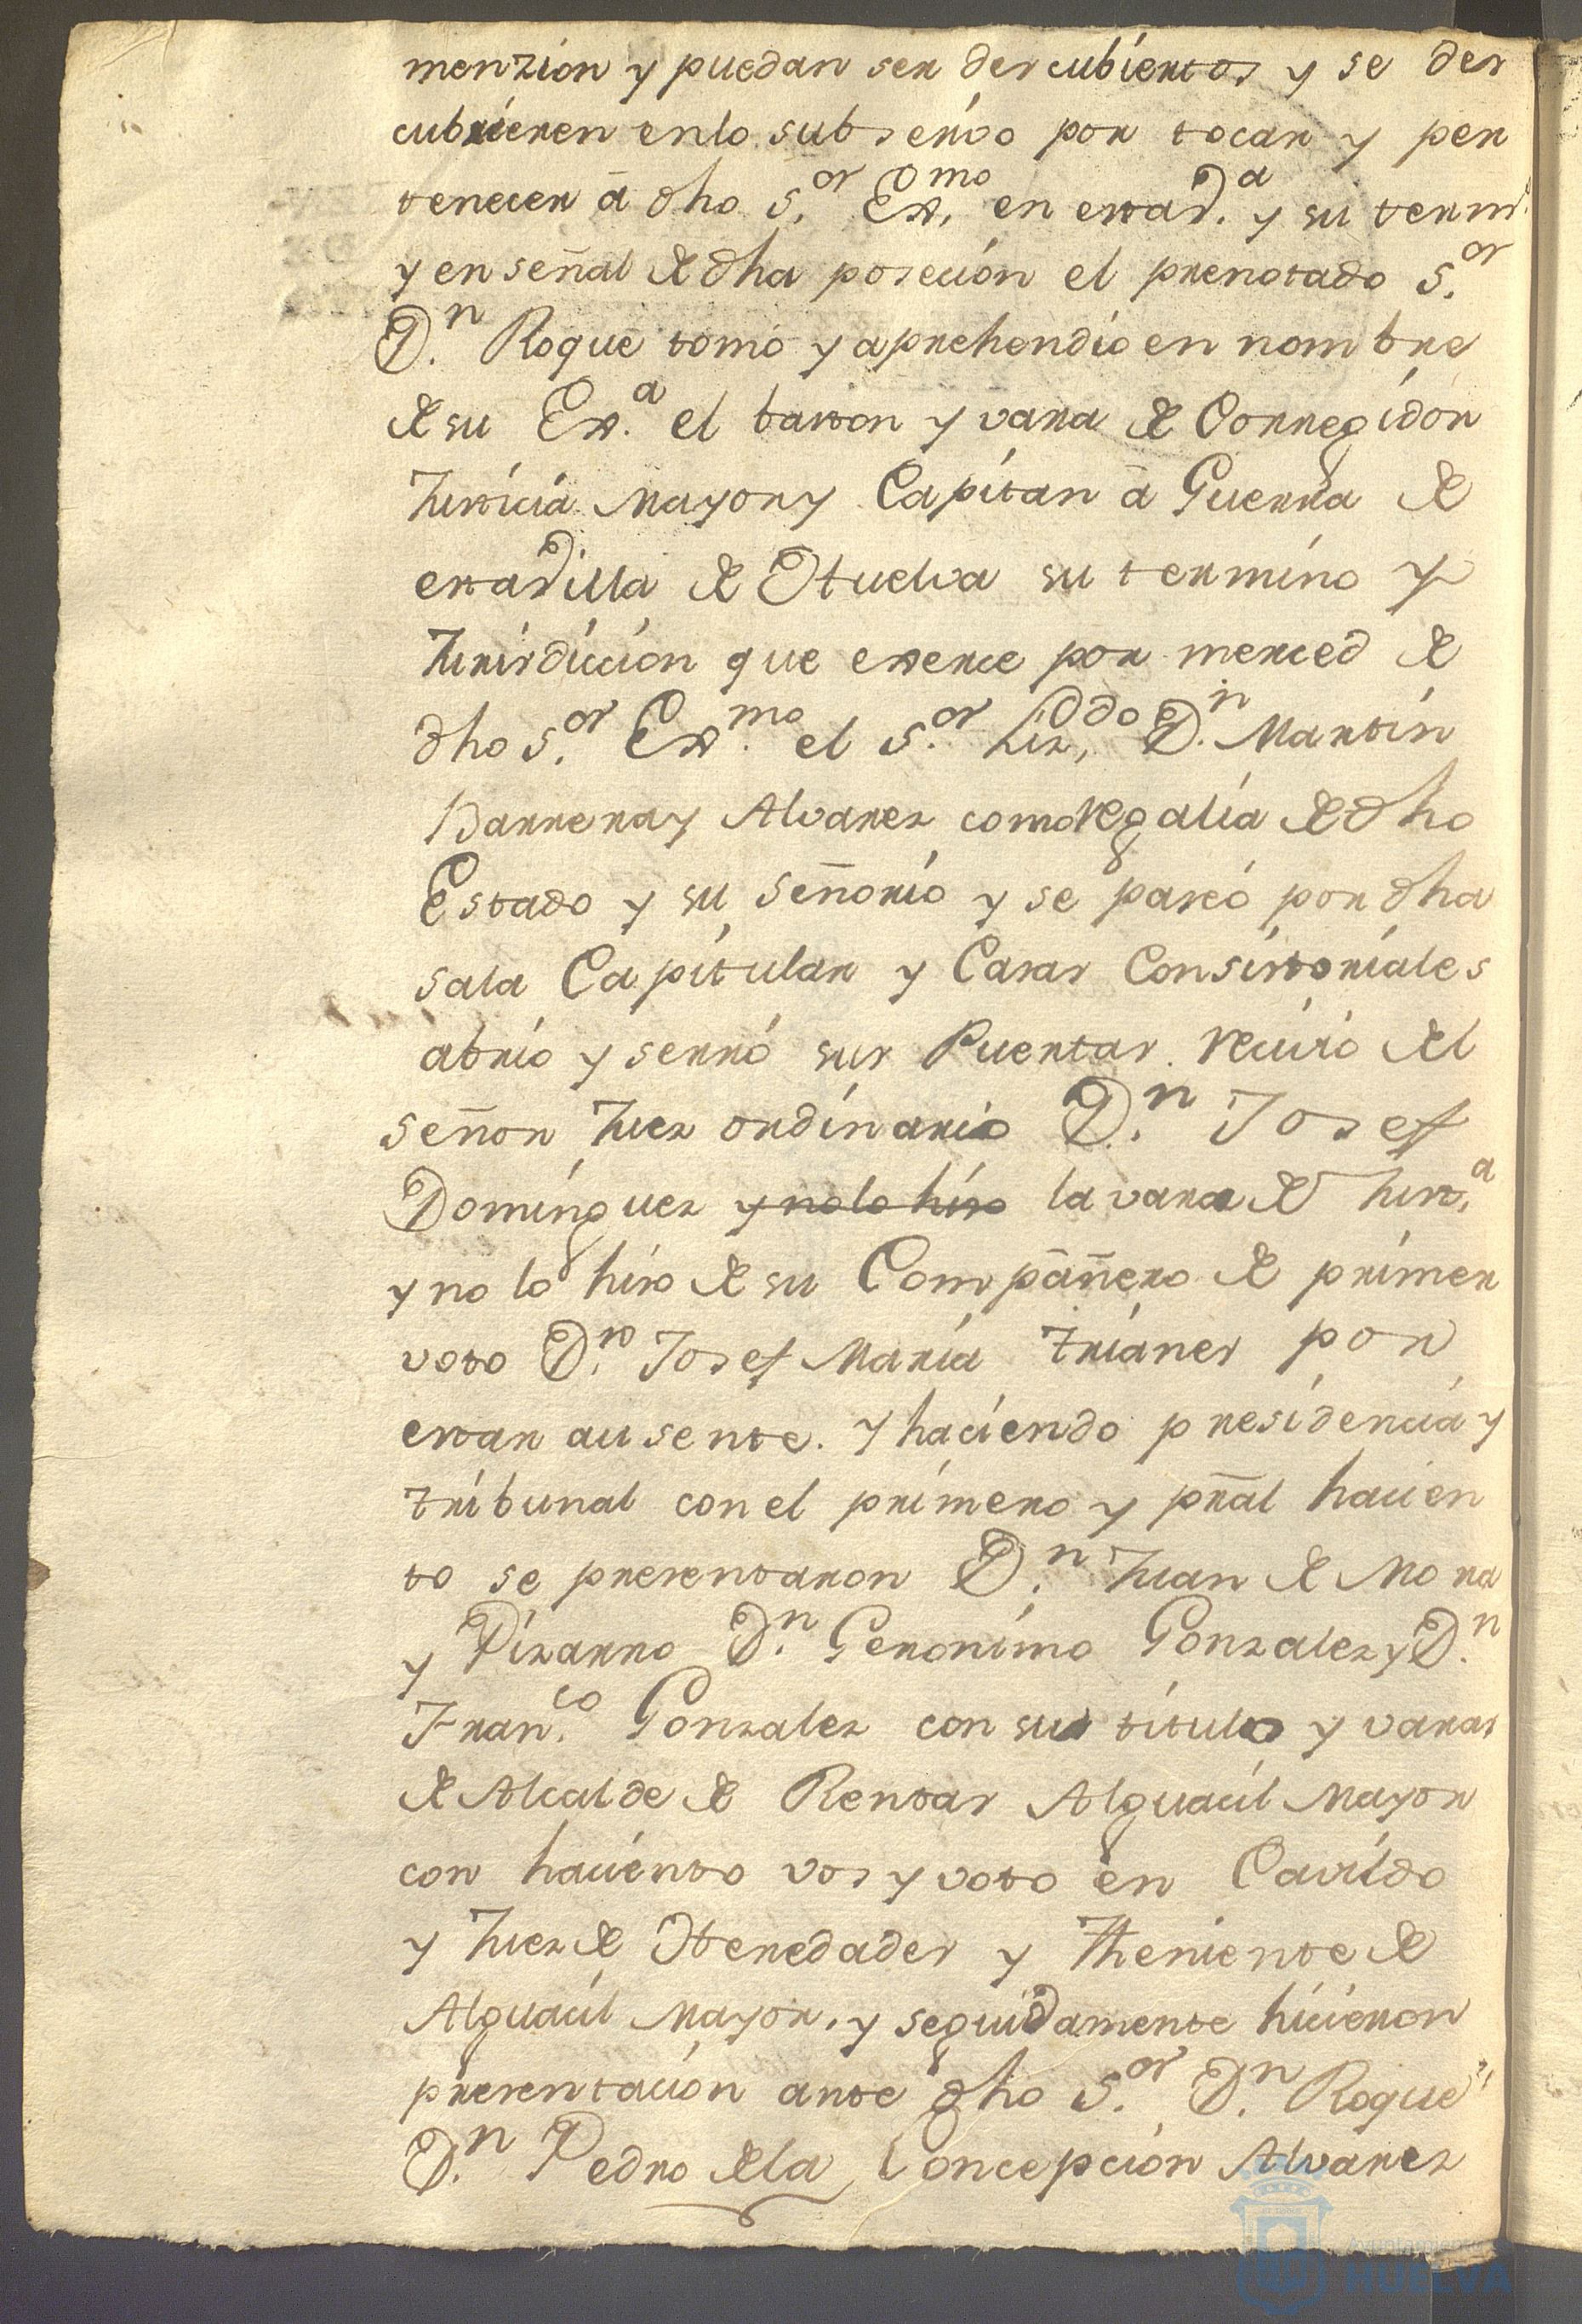 menzion y puedan ser descubiertos y se des
cubrieren enlo subsesivo por tocar y per
tenecer â dho S.or Ex.mo en estad.a y su term.
y en señal de dha posecion el prenotado S.or
D.n Roque tomó y aprehendio en nombre
de su Ex.a el baston y vara de Corregidor
Justicia Mayor y Capitan â Guerra de
estadilla de Huelva su termino y
Jurisdiccion que exerce por merced de
dho S.or Ex.mo el S.or Liz.do D.n Martin
Barrera y Alvarez como regalia de dho
Estado y su señorio y se paseó por dha
sala Capitular y Casas Consistoriales
abrio y serró sus Puertas. recivió del
señor Juez ordinario D.n Josef
Dominguez y no lo hiso la vara de Just.a
y no lo hiso de su Compañero de primer
voto D.n Josef Maria trianes por
estar ausente. y haciendo presidencia y
tribunal con el primero y prâl hacien
to se presentaron D.n Juan de Mora
y Pizarro D.n Geronimo Gonzalez y D.n
Fran.co Gonzalez con sus titulos y varas
de Alcalde de Rentas Alguacil Mayor
con haciento vos y voto en Cavildo
y Juez de Heredades y Theniente de
Alguacil Mayor. y seguidamente hicieron
presentacion ante dho S.or D.n Roque
D.n Pedro dela Concepcion Alvarez
Ayuntamiento de
HUELVA